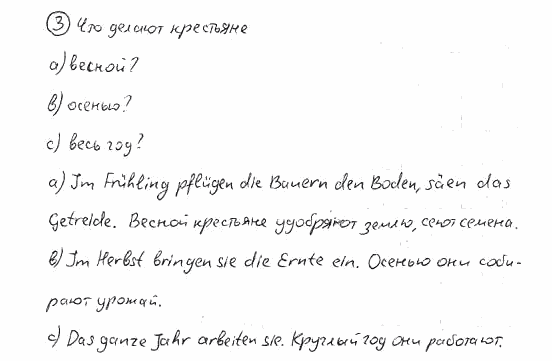 ③ Что делают крестьяне
a) весной?
в) осенью?
c) весь год?
a) Im Frühling pflügen die Bauern den Boden, säen das
Getreide. Весной крестьяне удобряют землю, сеют семена.
в) Im Herbst bringen sie die Ernte ein. Осенью они соби-
рают урожай.
c) Das ganze Jahr arbeiten sie. Круглый год они работают.